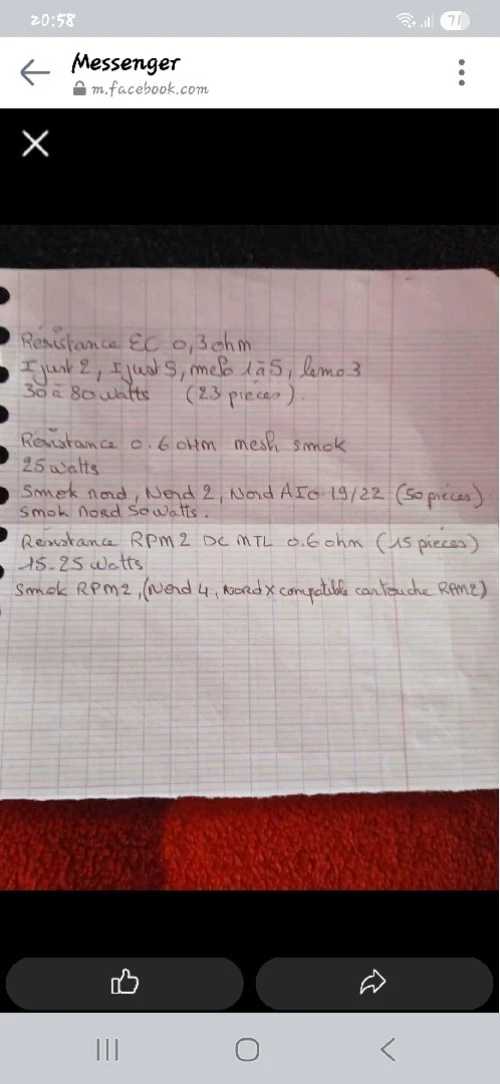 20:58
71
Messenger
m.facebook.com
Résistance EC 0,3 ohm
Ijust 2, Ijust S, melo 1 à 5, lemo 3
30 à 80 watts (23 pièces).
Résistance 0.6 oHm mesh smok
25 watts
Smok nord, Nord 2, Nord AIO 19/22 (50 pièces)
Smok nord 50 watts.
Résistance RPM2 DC MTL 0.6 ohm (15 pièces)
15-25 Watts
Smok RPM2, (Nord 4, Nord X compatible cartouche RPM2)